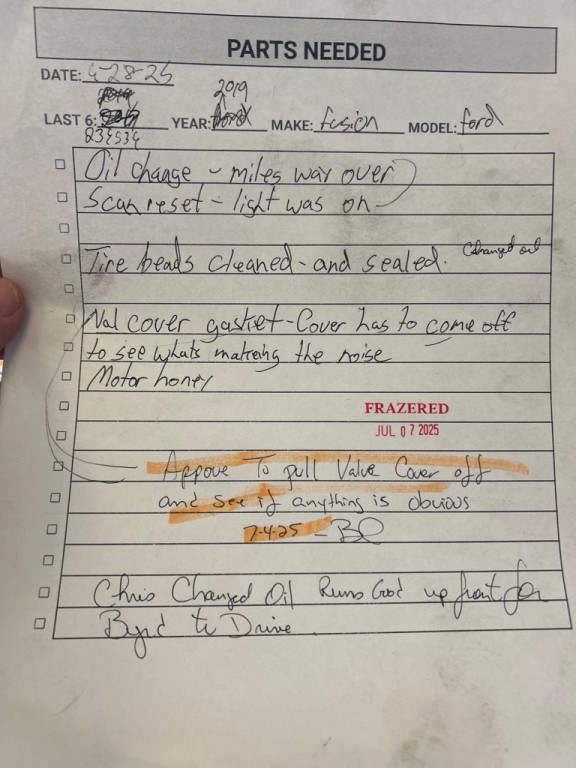 PARTS NEEDED
DATE: 4-28-25
2019
LAST 6: YEAR: MAKE: fusion MODEL: ford
234534
Oil change - miles way over
Scan reset - light was on
Tire beads cleaned - and sealed. Changed oil
Val cover gasket - Cover has to come off
to see whats making the noise
Motor honey
FRAZERED
JUL 07 2025
Appove To pull Valve Cover off
and see if anything is obvious
7-4-25 -
Chris Changed Oil Runs Good up front for
Byrd to Drive